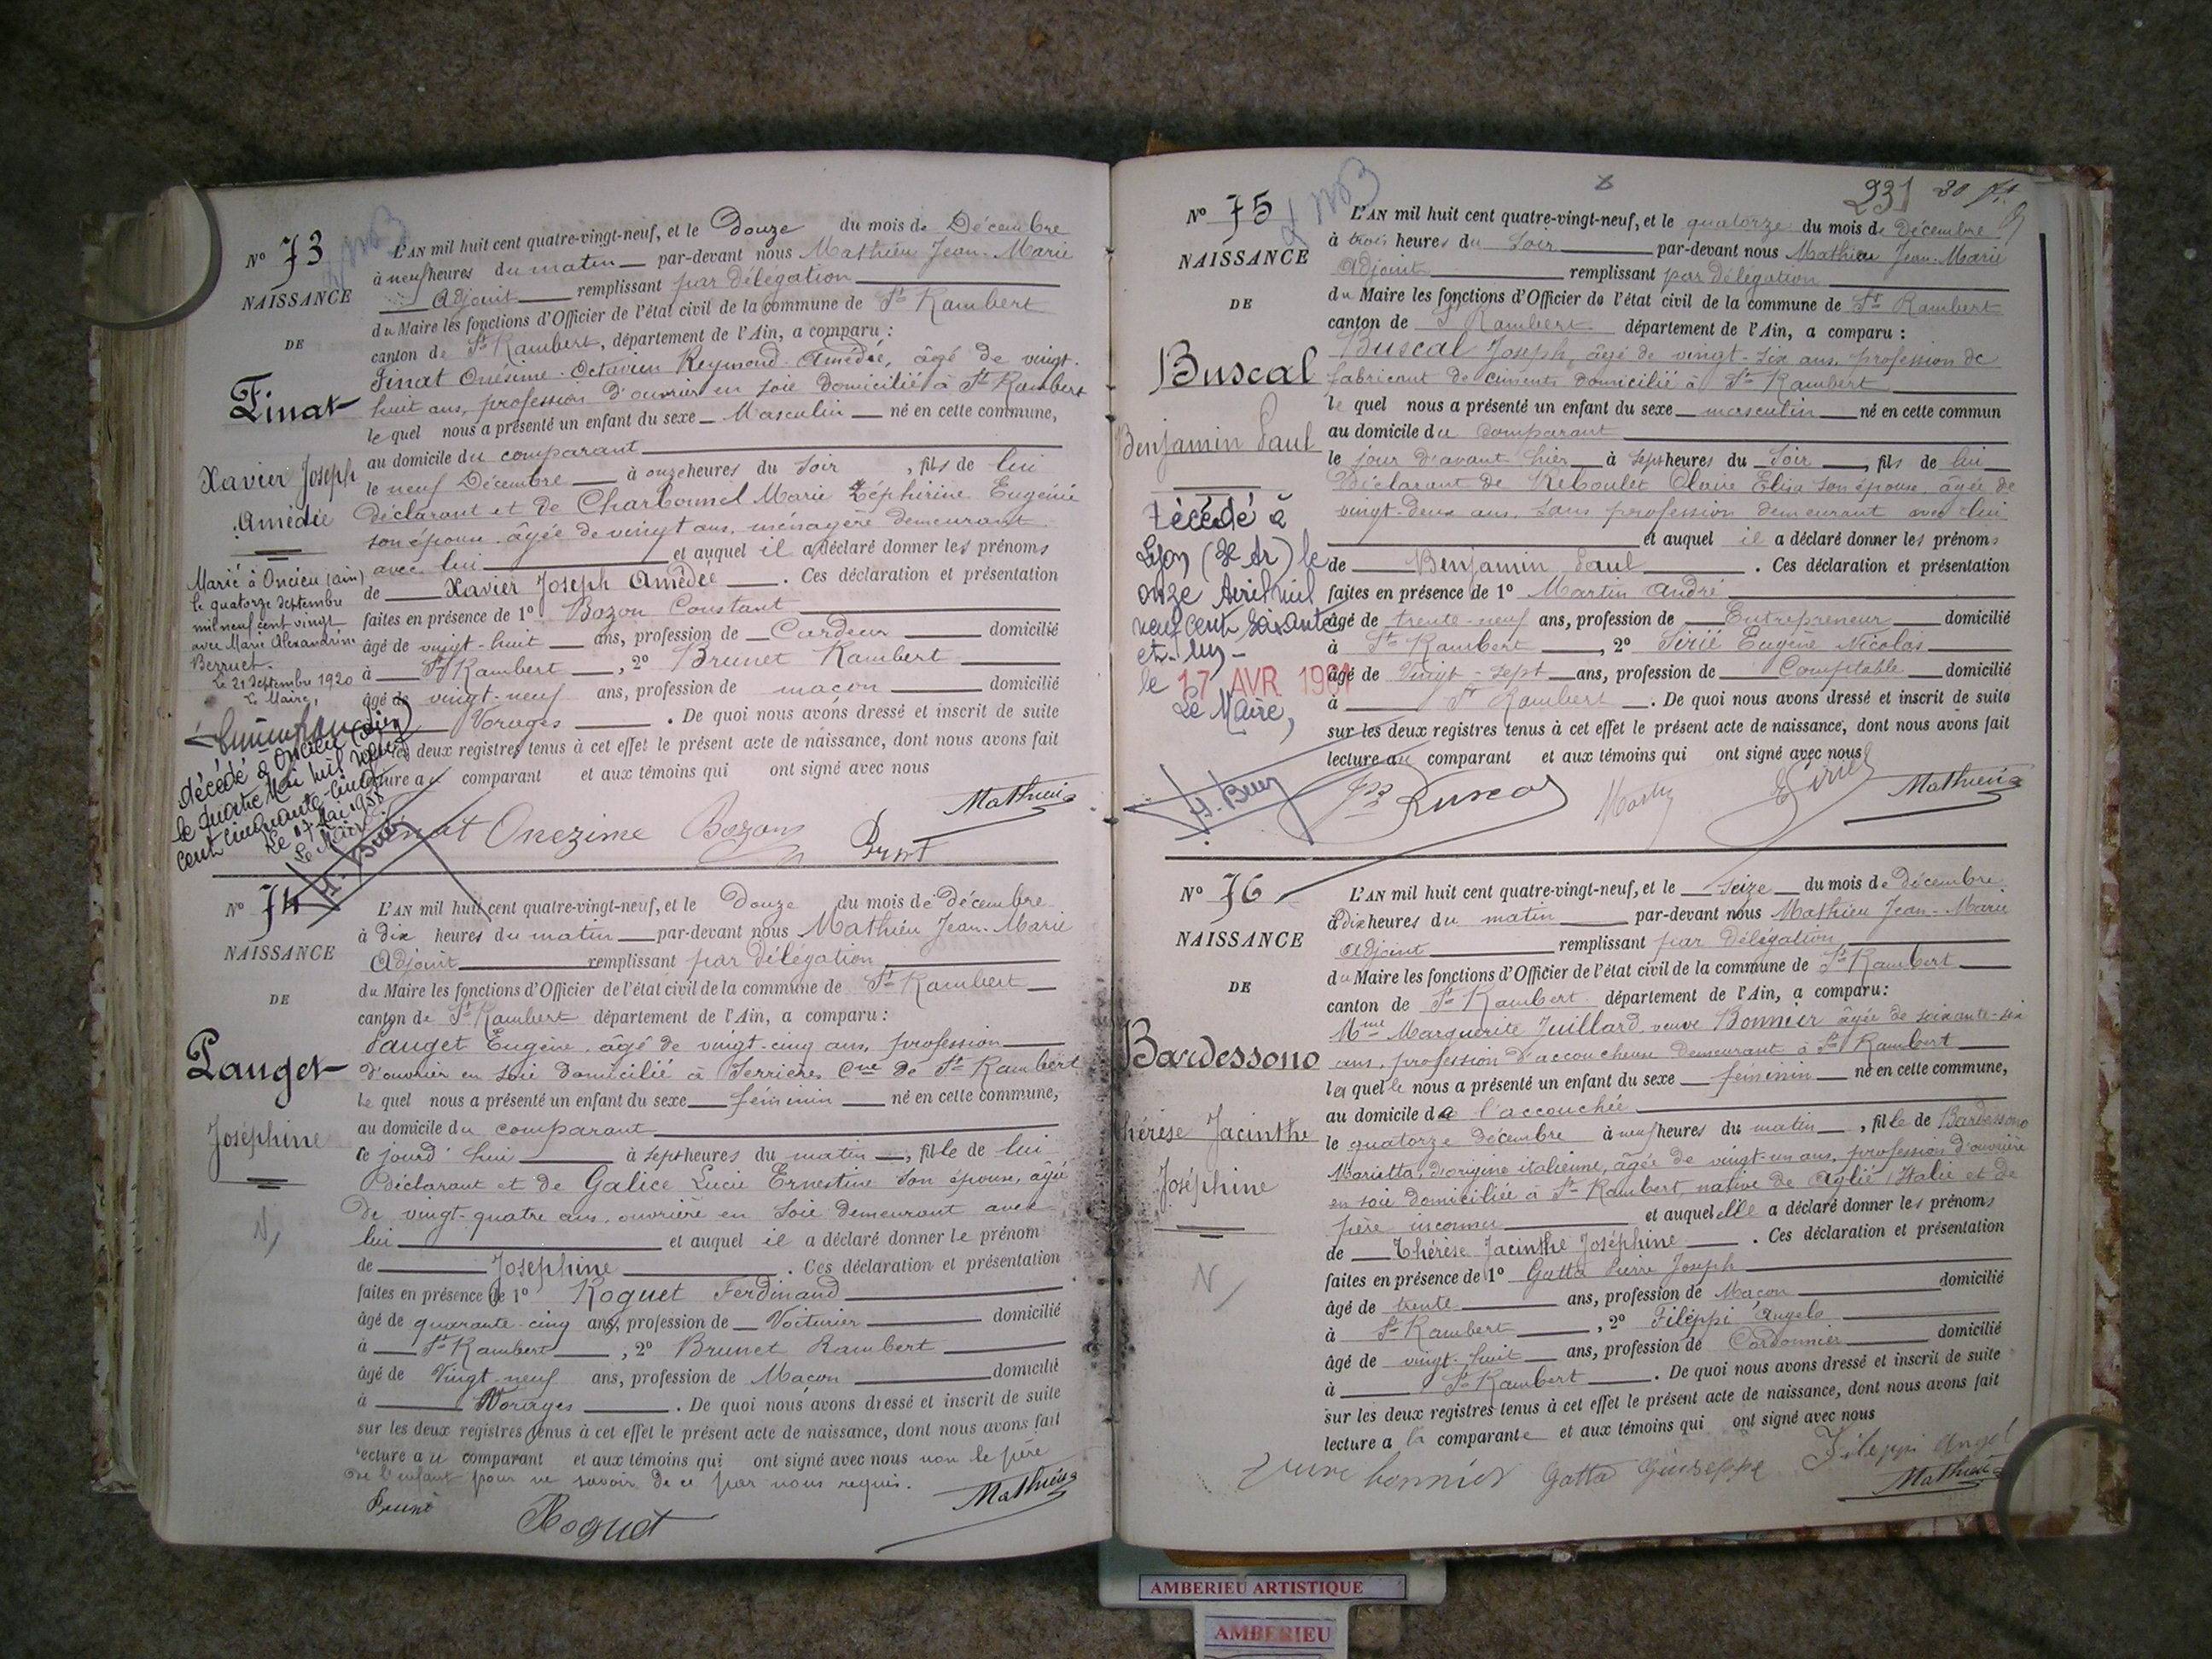 Nº 73
NAISSANCE
DE
Finat
Xavier Joseph
Amédée
Marié à Oncieu (Ain)
le quatorze Septembre
mil neuf cent vingt
avec Marie Alexandrine
Berruet.
Le 21 Septembre 1920
Le Maire,
décédé à Oncieu (Ain)
le quatre Mai mil neuf
cent cinquante-cinq
Le 17 Mai 1955
Le Maire
H. Buer
L'AN mil huit cent quatre-vingt-neuf, et le Douze du mois de Décembre
à neuf heures du matin par-devant nous Mathieu Jean-Marie
Adjoint remplissant par délégation
du Maire les fonctions d'Officier de l'état civil de la commune de St Rambert
canton de St Rambert, département de l'Ain, a comparu :
Finat Onésime Octavien Reymond Amédée, âgé de vingt-
huit ans, profession d'ouvrier en soie domicilié à St Rambert
le quel nous a présenté un enfant du sexe Masculin né en cette commune,
au domicile du comparant
le neuf Décembre à onze heures du soir, fils de lui
déclarant et de Charbonnel Marie Zéphirine Eugénie
son épouse, âgée de vingt ans, ménagère demeurant
avec lui et auquel il a déclaré donner les prénoms
de Xavier Joseph Amédée. Ces déclaration et présentation
faites en présence de 1º Bozon Constant
âgé de vingt-huit ans, profession de Cardeur domicilié
à St Rambert, 2º Brunet Rambert
âgé de vingt-neuf ans, profession de maçon domicilié
Vorages. De quoi nous avons dressé et inscrit de suite
les deux registres tenus à cet effet le présent acte de naissance, dont nous avons fait
lecture au comparant et aux témoins qui ont signé avec nous
Mathieu
Finat Onezime Bozon Brunt
Nº 74
NAISSANCE
DE
Pauget
Joséphine
N
L'AN mil huit cent quatre-vingt-neuf, et le Douze du mois de décembre
à dix heures du matin par-devant nous Mathieu Jean-Marie
Adjoint remplissant par délégation
du Maire les fonctions d'Officier de l'état civil de la commune de St Rambert
canton de St Rambert département de l'Ain, a comparu :
Pauget Eugène, âgé de vingt-cinq ans, profession
d'ouvrier en soie domicilié à Serrières Cne de St Rambert
le quel nous a présenté un enfant du sexe féminin né en cette commune,
au domicile du comparant
ce jourd'hui à sept heures du matin, fille de lui
Déclarant et de Galice Lucie Ernestine son épouse, âgée
de vingt-quatre ans, ouvrière en soie demeurant avec
lui et auquel il a déclaré donner le prénom
de Joséphine. Ces déclaration et présentation
faites en présence de 1º Roguet Ferdinand
âgé de quarante-cinq ans, profession de Voiturier domicilié
à St Rambert, 2º Brunet Rambert
âgé de Vingt-neuf ans, profession de Maçon domicilié
à Vorages. De quoi nous avons dressé et inscrit de suite
sur les deux registres tenus à cet effet le présent acte de naissance, dont nous avons fait
lecture au comparant et aux témoins qui ont signé avec nous non le père
de l'enfant pour ne savoir de ce par nous requis.
Mathieu
Roguet
Nº 75
NAISSANCE
DE
Buscal
Benjamin Paul
Décédé à
Lyon (3e Ar) le
onze Avril mil
neuf cent soixante
et un
le 17 AVR 1961
Le Maire,
H. Buer
231
L'AN mil huit cent quatre-vingt-neuf, et le quatorze du mois de décembre
à trois heures du soir par-devant nous Mathieu Jean-Marie
Adjoint remplissant par délégation
du Maire les fonctions d'Officier de l'état civil de la commune de St Rambert
canton de St Rambert département de l'Ain, a comparu :
Buscal Joseph, âgé de vingt-six ans, profession de
fabricant de ciments domicilié à St Rambert
le quel nous a présenté un enfant du sexe masculin né en cette commun
au domicile du comparant
le jour d'avant hier à sept heures du soir, fils de lui
Déclarant de Reboulet Claire Elisa son épouse, âgée de
vingt-deux ans, sans profession demeurant avec lui
et auquel il a déclaré donner les prénoms
de Benjamin Paul. Ces déclaration et présentation
faites en présence de 1º Martin André
âgé de trente-neuf ans, profession de Entrepreneur domicilié
à St Rambert, 2º Sirié Eugène Nicolas
âgé de Vingt-sept ans, profession de Comptable domicilié
à St Rambert. De quoi nous avons dressé et inscrit de suite
sur les deux registres tenus à cet effet le présent acte de naissance, dont nous avons fait
lecture au comparant et aux témoins qui ont signé avec nous
Buscal Martin Mathieu
Nº 76
NAISSANCE
DE
Bardessono
Thérèse Jacinthe
Joséphine
N
L'AN mil huit cent quatre-vingt-neuf, et le Seize du mois de décembre
à dix heures du matin par-devant nous Mathieu Jean-Marie
Adjoint remplissant par délégation
du Maire les fonctions d'Officier de l'état civil de la commune de St Rambert
canton de St Rambert département de l'Ain, a comparu :
Mme Marguerite Juillard veuve Bonnier âgée de soixante-six
ans, profession d'accoucheuse demeurant à St Rambert
la quelle nous a présenté un enfant du sexe féminin né en cette commune,
au domicile de l'accouchée
le quatorze décembre à neuf heures du matin, fille de Bardessono
Marietta, d'origine italienne, âgée de vingt-un ans, profession d'ouvrière
en soie domiciliée à St Rambert, native de Aglié Italie et de
père inconnu et auquel elle a déclaré donner les prénoms
de Thérèse Jacinthe Joséphine. Ces déclaration et présentation
faites en présence de 1º Gatta Pierre Joseph
âgé de trente ans, profession de Maçon domicilié
à St Rambert, 2º Filéppi Angelo
âgé de vingt-huit ans, profession de Cordonnier domicilié
à St Rambert. De quoi nous avons dressé et inscrit de suite
sur les deux registres tenus à cet effet le présent acte de naissance, dont nous avons fait
lecture à la comparante et aux témoins qui ont signé avec nous
veuve bonnier Gatta Giuseppe Fileppi Angel
Mathieu
AMBERIEU ARTISTIQUE
AMBERIEU